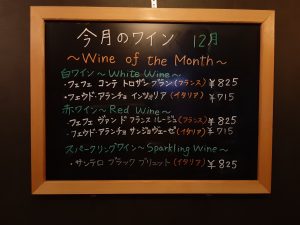 今月のワイン 12月
～Wine of the Month～
白ワイン～White Wine～
・フェフェ コンテ トロザン ブラン(フランス) ￥825
・フェウド・アランチョ インツォリア(イタリア) ￥715
赤ワイン～Red Wine～
・フェフェ ヴァン ド フランス ルージュ(フランス) ￥825
・フェウド・アランチョ サンジョヴェーゼ(イタリア) ￥715
スパークリングワイン～Sparkling Wine～
・サンテロ ブラック ブリュット(イタリア) ￥825